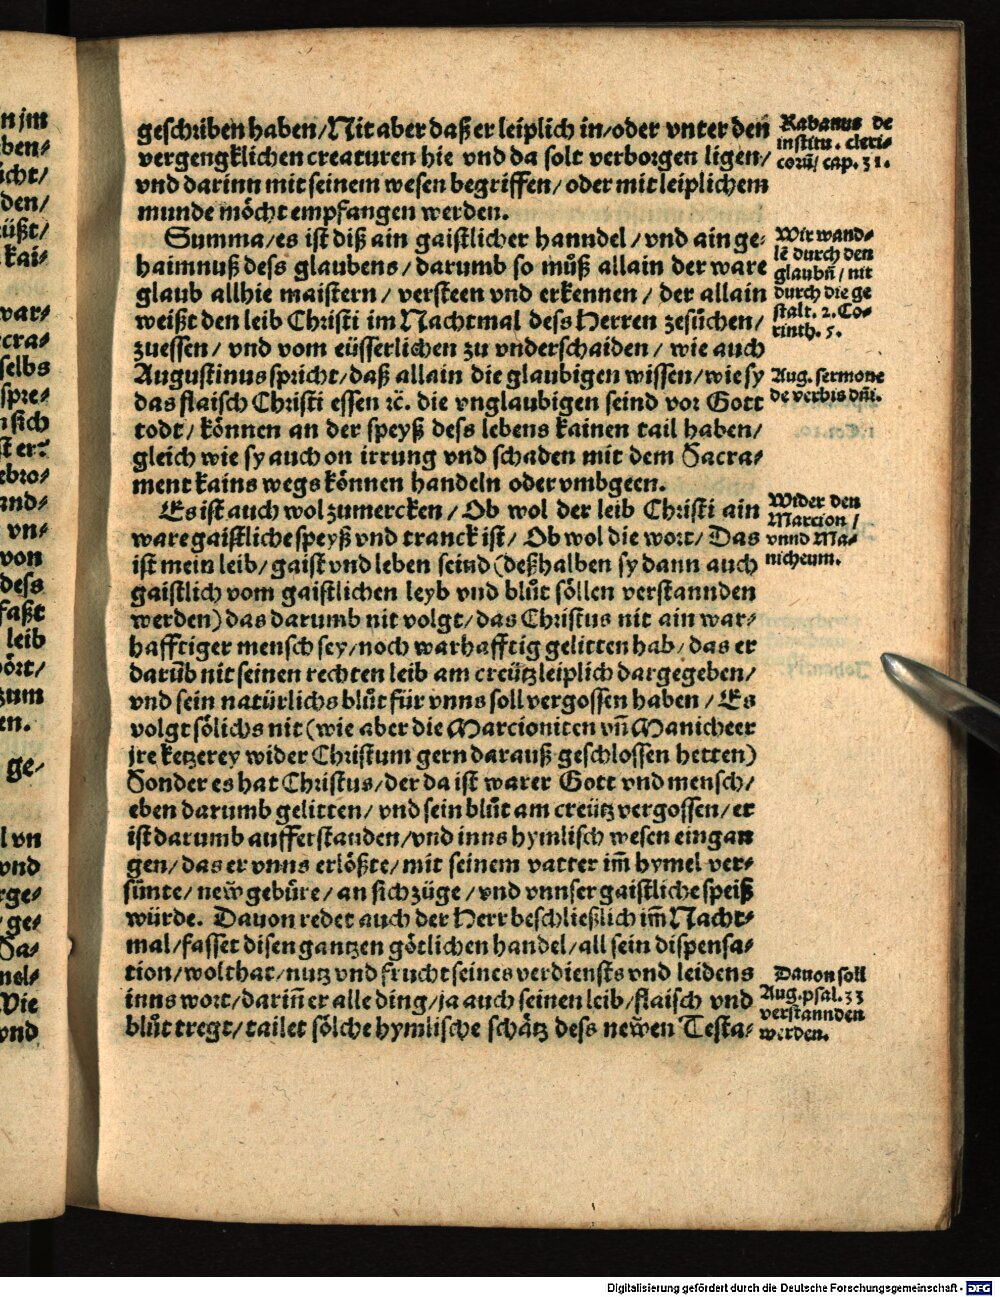 geschriben haben/Nit aber daß er leiplich in/oder vnter den
vergengklichen creaturen hie vnd da solt verborgen ligen/
vnd darinn mit seinem wesen begriffen/oder mit leiplichem
munde möcht empfangen werden.
Rabanus de
institu. cleri-
corū/cap.31.
Summa/es ist diß ain gaistlicher hanndel/vnd ain ge-
haimnuß dess glaubens/darumb so můß allain der ware
glaub allhie maistern/versteen vnd erkennen/der allain
weißt den leib Christi im Nachtmal dess Herren zesůchen/
zuessen/vnd vom eüsserlichen zu vnderschaiden/wie auch
Augustinus spricht/daß allain die glaubigen wissen/wie sy
das flaisch Christi essen ꝛc̄. die vnglaubigen seind vor Gott
todt/können an der speyß dess lebens kainen tail haben/
gleich wie sy auch on irrung vnd schaden mit dem Sacra-
ment kains wegs können handeln oder vmbgeen.
Wir wand-
lē durch den
glaubñ/nit
durch die ge
stalt. 2. Co-
rinth. 5.
Aug. sermone
de verbis dñi.
Es ist auch wol zumercken/Ob wol der leib Christi ain
ware gaistliche speyß vnd tranck ist/Ob wol die wort/Das
ist mein leib/gaist vnd leben seind (deßhalben sy dann auch
gaistlich vom gaistlichen leyb vnd blůt söllen verstannden
werden) das darumb nit volgt/das Christus nit ain war-
hafftiger mensch sey/noch warhafftig gelitten hab/das er
darūb nit seinen rechten leib am creütz leiplich dargegeben/
vnd sein natürlichs blůt für vnns soll vergossen haben/Es
volgt sölichs nit (wie aber die Marcioniten vñ Manicheer
jre ketzerey wider Christum gern darauß geschlossen hetten)
Sonder es hat Christus/der da ist warer Gott vnd mensch/
eben darumb gelitten/vnd sein blůt am creütz vergossen/er
ist darumb aufferstanden/vnd inns hymlisch wesen eingan
gen/das er vnns erlößte/mit seinem vatter im̄ hymel ver-
sünte/new̌ gebůre/an sich züge/vnd vnnser gaistliche speiß
würde. Dauon redet auch der Herr beschließlich im̄ Nacht-
mal/fasset disen gantzen götlichen handel/all sein dispensa-
tion/wolthat/nutz vnd frucht seines verdiensts vnd leidens
inns wort/dariñ er alle ding/ja auch seinen leib/flaisch vnd
blůt tregt/tailet sölche hymlische schätz dess new̌en Testa-
Wider den
Marcion/
vnnd Ma-
nicheum.
Dauon soll
Aug. psal. 33
verstannden
werden.
Digitalisierung gefördert durch die Deutsche Forschungsgemeinschaft - DFG